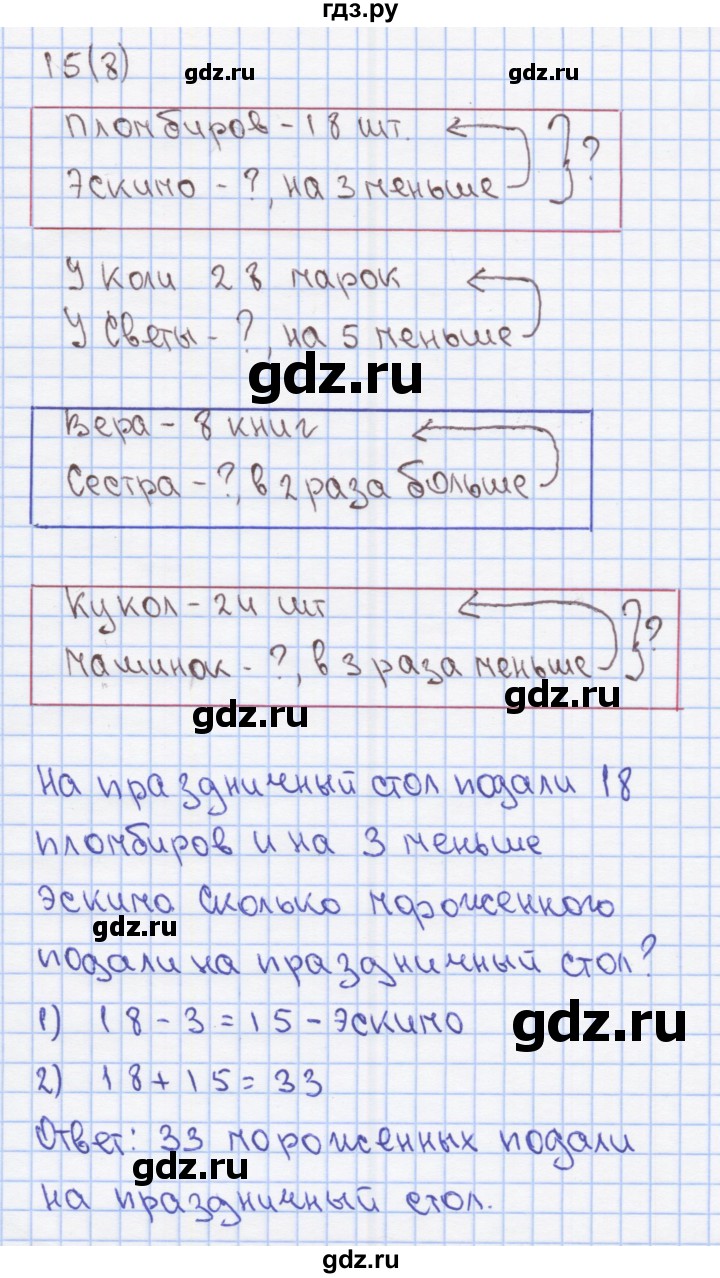 гдз.ру
15(8)
gdz.ru gdz.ru
Пломбиров - 18 шт.
Эскимо - ?, на 3 меньше } ?
У Коли 28 марок
У Светы - ?, на 5 меньше
gdz.ru
Вера - 8 книг
Сестра - ?, в 2 раза больше
Кукол - 24 шт
Машинок - ?, в 3 раза меньше } ?
gdz.ru gdz.ru
На праздничный стол подали 18
пломбиров и на 3 меньше
эскимо сколько мороженного
gdz.ru
подали на праздничный стол?
1) 18 - 3 = 15 - эскимо
gdz.ru
2) 18 + 15 = 33
Ответ: 33 мороженных подали
gdz.ru
на праздничный стол.
gdz.ru